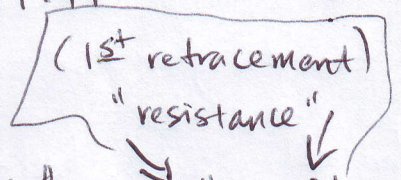 (1st retracement)
"resistance"